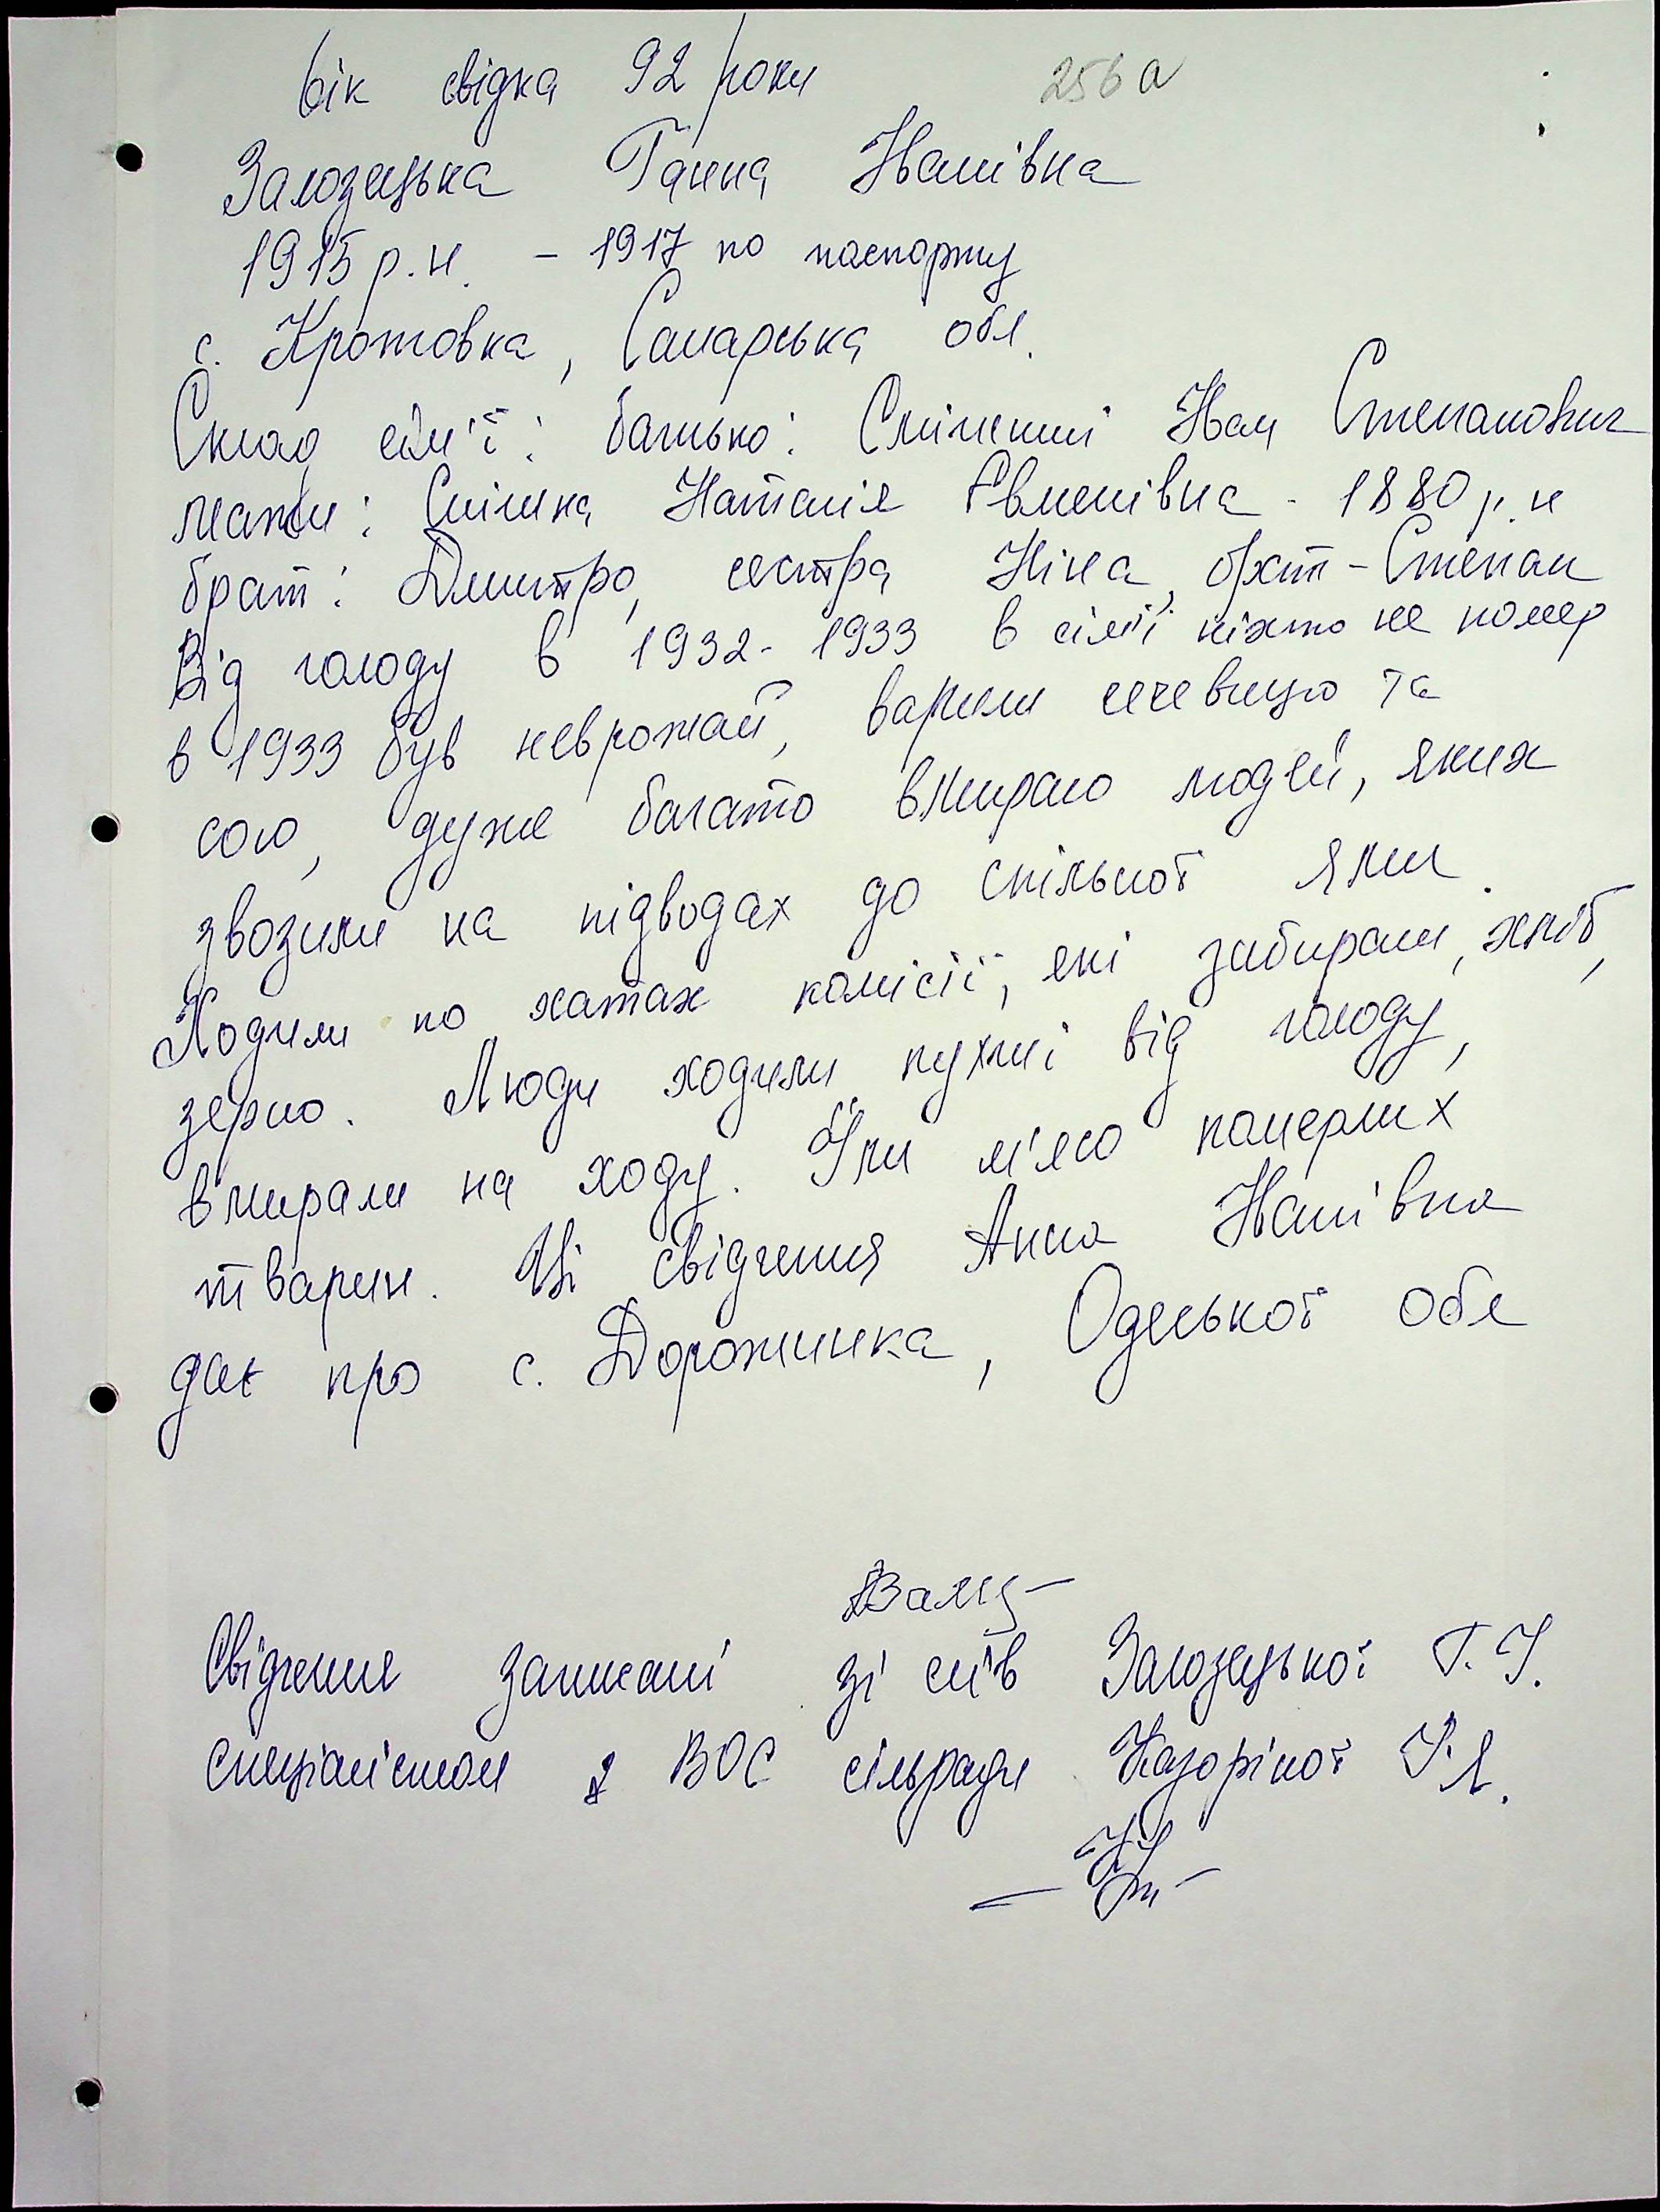 вік свідка 92 роки 256а
Залозецька Ганна Іванівна
1915 р.н. - 1917 по паспорту
с. Кротовка, Самарська обл.
Склад сім'ї: батько: Іван Степанович
мати: Наталія Євменівна - 1880 р.н
брат: Дмитро, сестра Ніна, брат - Степан
Від голоду в 1932-1933 в сім'ї ніхто не помер
в 1933 був неврожай, варили сечевицю та
сою, дуже багато вмирало людей, яких
звозили на підводах до спільної ями.
Ходили по хатах комісії, які забирали, хліб,
зерно. Люди ходили пухлі від голоду,
вмирали на ходу. Їли м'ясо померлих
тварин. Ці свідчення Анна Іванівна
дає про с. Дорожинка, Одеської обл
Свідчення записані зі слів Залозецької Г.І.
спеціалістом з ВОС сільради Назоріної І.Я.